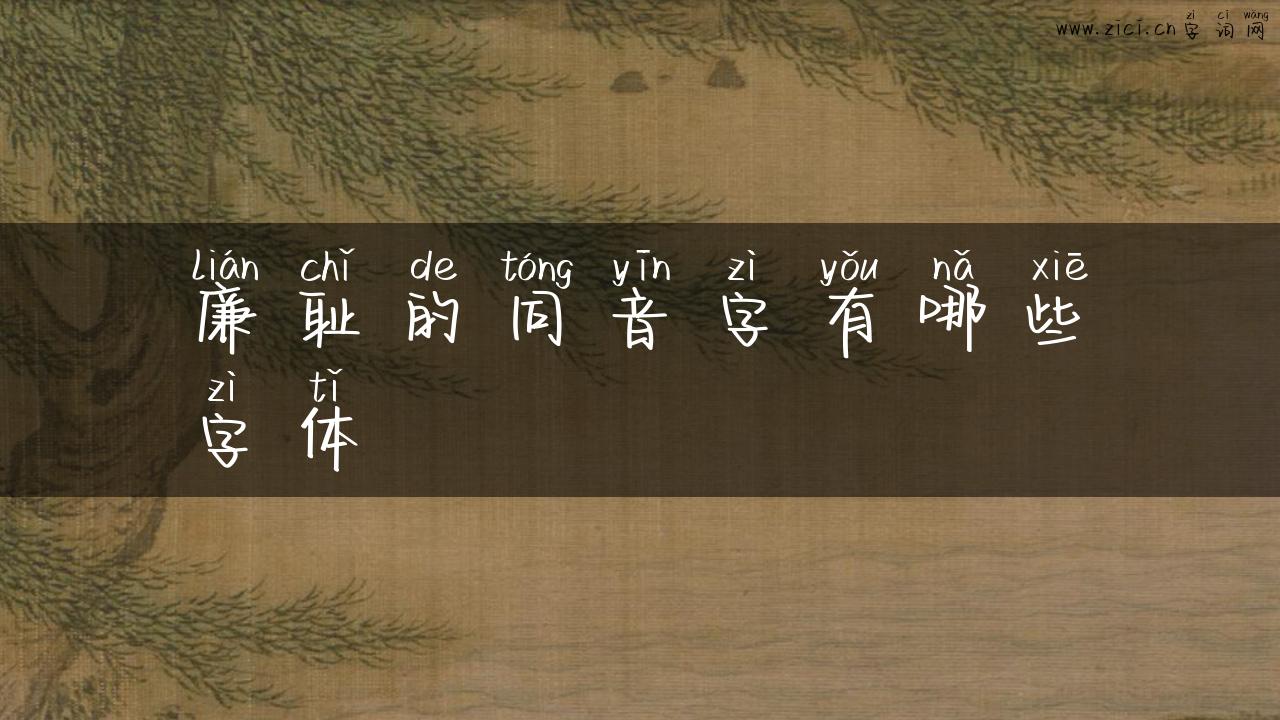 zì cí wǎng
www.zici.cn 字词网
lián chǐ de tóng yīn zì yǒu nǎ xiē
廉耻的同音字有哪些
zì tǐ
字体